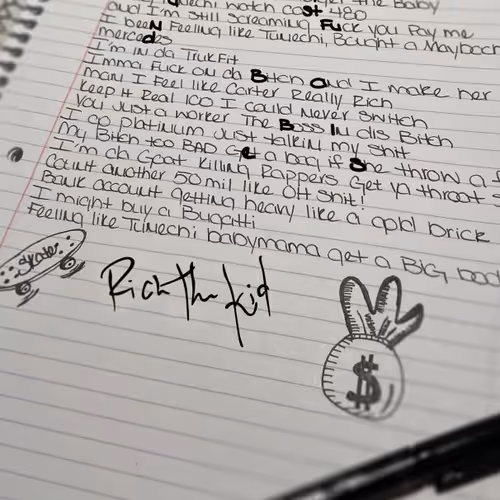 the Baby
watch cost 480
and I'm still screaming Fuck you Pay me
I been Feeling like Tunechi, Bought a Maybach
mercedes
I'm in da TrukFit
Imma Fuck on da Bitch and I make her
man I Feel like Carter Really Rich
keep it Real 100 I could Never snitch
You Just a worker The Boss IN dis Bitch
I go platinum Just talkin my shit
My Bitch too BAD get a bag if She throw a f
I'm da Goat Killing Rappers Get ya throat s
Count another 50 mil like Oh shit!
Bank account getting heavy like a gold brick
I might buy a Bugatti
Feeling like Tunechi babymama get a BIG bod
Skate
Rich the kid
$